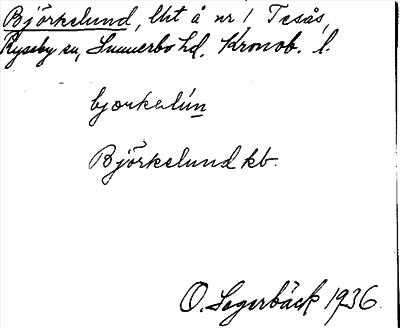 Björkelund, lht å nr 1 Tesås,
Ryssby sn, Sunnerbo hd. Kronob. l.
bjørkalún
Björkelund kb.
O. Segerbäck 1936.